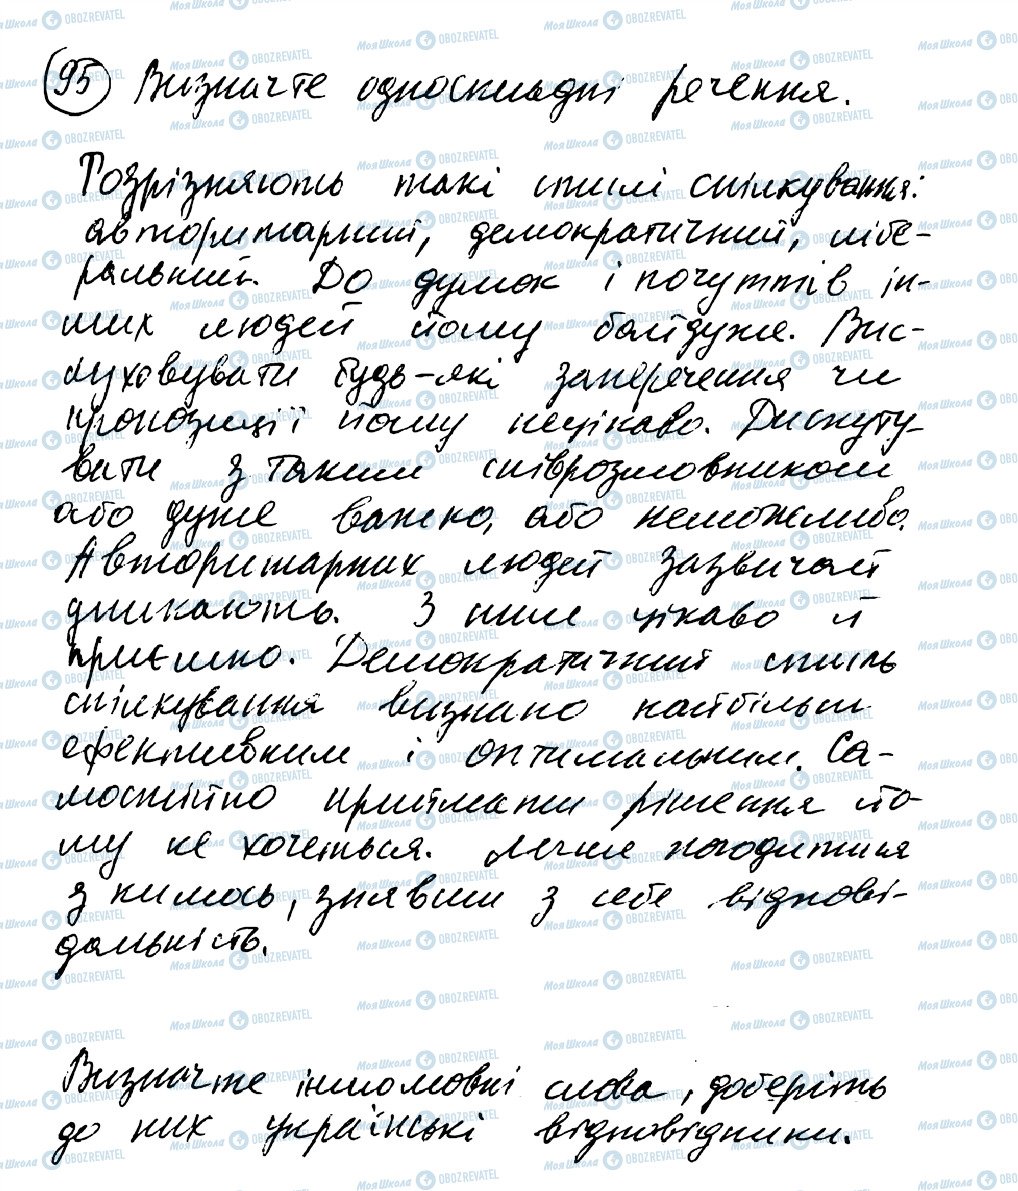 95 Визначте односкладні речення.
Розрізняють такі стилі спілкування:
авторитарний, демократичний, лібе-
ральний. До думок і почуттів ін-
ших людей йому байдуже. Вис-
луховувати будь-які заперечення чи
пропозиції йому нецікаво. Дискуту-
вати з таким співрозмовником
або дуже важко, або неможливо.
Авторитарних людей зазвичай
уникають. З ним цікаво й
приємно. Демократичний стиль
спілкування визнано найбільш
ефективним і оптимальним. Са-
мостійно приймати рішення йо-
му не хочеться. Легше погодитися
з кимось, знявши з себе відпові-
дальність.
Визначте іншомовні слова, доберіть
до них українські відповідники.
Моя Школа OBOZREVATEL